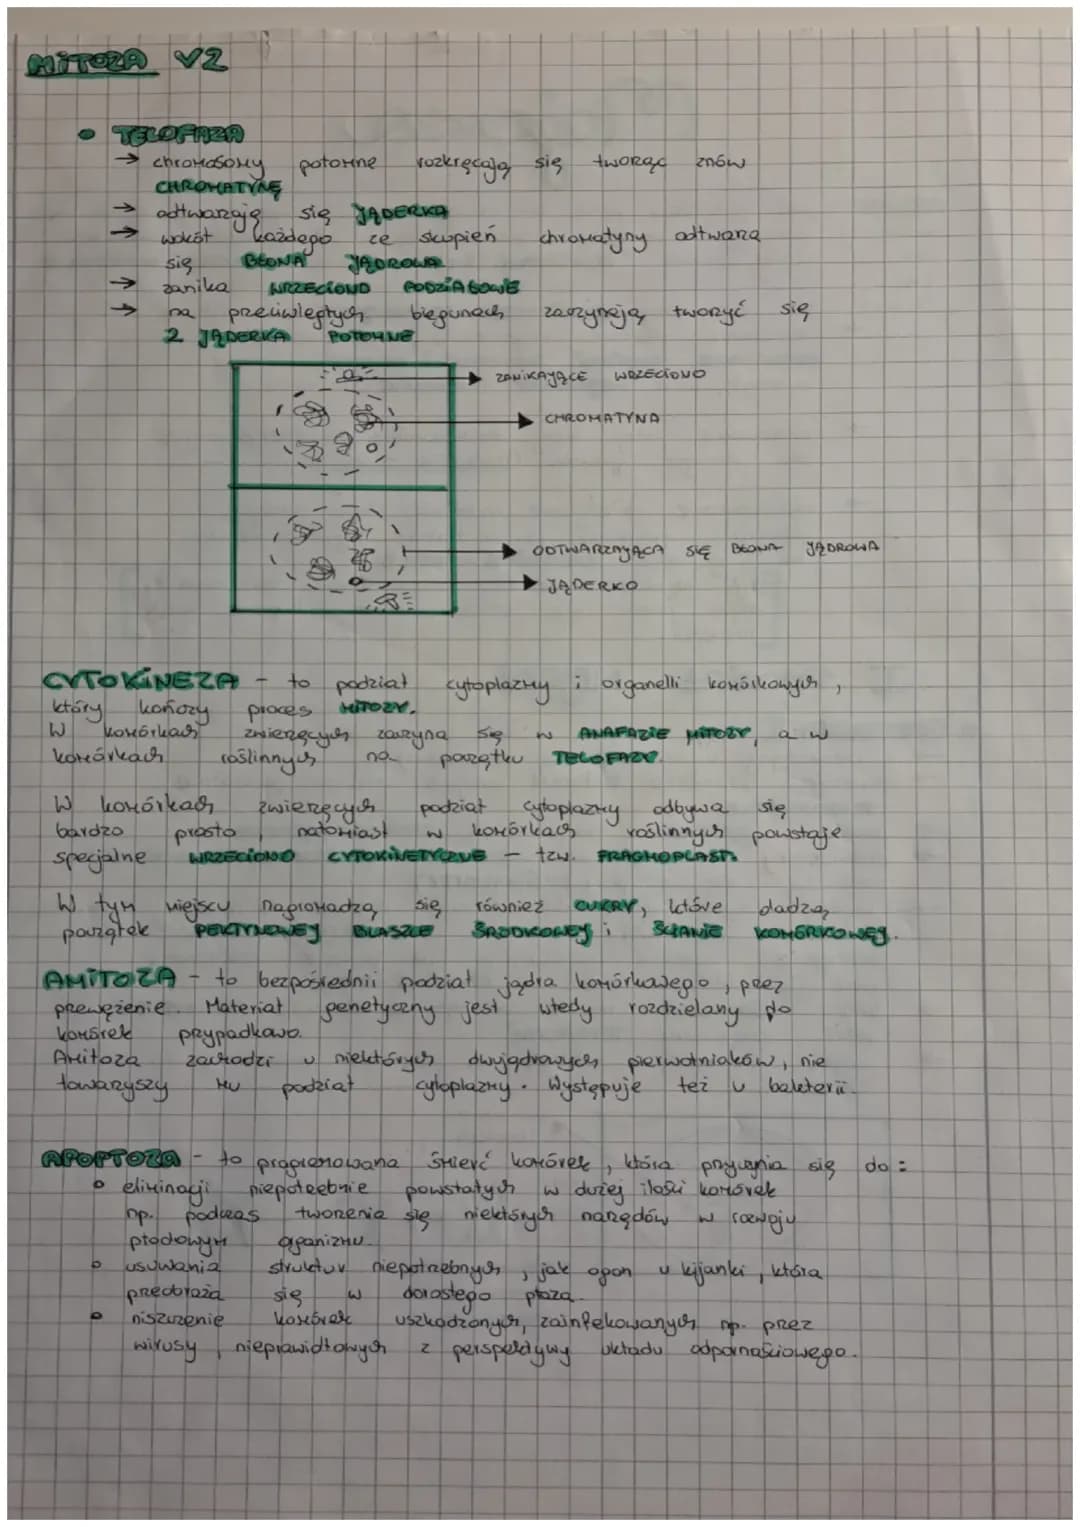 MITOZA V2
• TELOFAZA
→ chromosomy potomne rozkręcają się tworząc znów
CHROMATYNĘ
→ odtwarzają się JĄDERKA
→ wokół każdego ze skupień chromatyny odtwarza
się BŁONA JĄDROWA
→ zanika WRZECIONO PODZIAŁOWE
→ na przeciwległych biegunach zaczynają tworzyć się
2 JĄDERKA POTOMNE
ZANIKAJĄCE WRZECIONO
CHROMATYNA
ODTWARZAJĄCA SIĘ BŁONA JĄDROWA
JĄDERKO
CYTOKINEZA - to podział cytoplazmy i organelli komórkowych,
który kończy proces MITOZY.
W komórkach zwierzęcych zaczyna się w ANAFAZIE MITOZY, a w
komórkach roślinnych na początku TELOFAZY.
W komórkach zwierzęcych podział cytoplazmy odbywa się
bardzo prosto, natomiast w komórkach roślinnych powstaje
specjalne WRZECIONO CYTOKINETYCZNE - tzw. FRAGMOPLAST.
W tym miejscu nagromadzą się również CUKRY, które dadzą
początek PEKTYNOWEJ BLASZCE ŚRODKOWEJ i ŚCIANIE KOMÓRKOWEJ.
AMITOZA - to bezpośrednii podział jądra komórkowego, przez
przewężenie. Materiał genetyczny jest wtedy rozdzielany do
komórek przypadkowo.
Amitoza zachodzi u niektórych dwujądrowych pierwotniaków, nie
towarzyszy mu podział cytoplazmy. Występuje też u bakterii.
APOPTOZA - to programowana śmierć komórek, która przyczynia się do:
• eliminacji niepotrzebnie powstałych w dużej ilości komórek
np. podczas tworzenia się niektórych narządów w rozwoju
płodowym organizmu.
• usuwania struktur niepotrzebnych, jak ogon u kijanki, która
przeobraża się w dorosłego płaza.
• niszczenie komórek uszkodzonych, zainfekowanych np. przez
wirusy, nieprawidłowych z perspektywy układu odpornościowego.